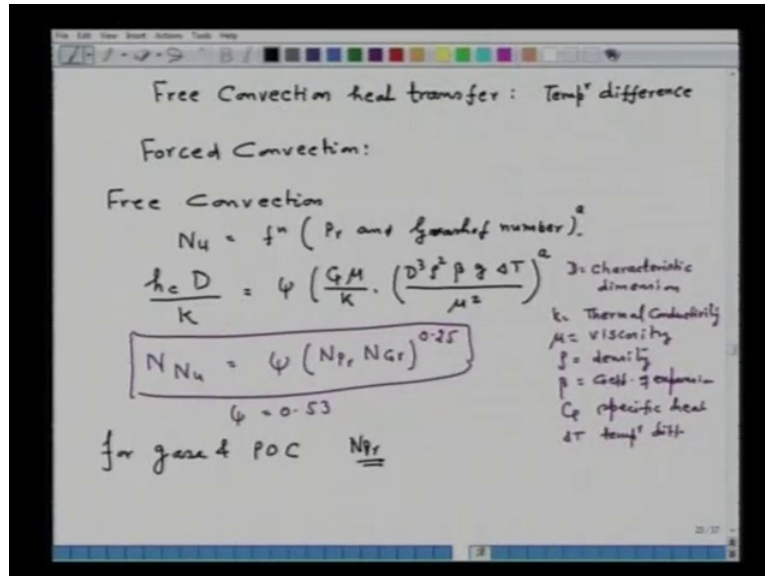 File Edit View Insert Actions Tools Help
Free Convection heat transfer : Tempr difference
Forced Convection:
Free Convection
Nu = fn ( Pr and Grashof number )a.
hc D / K = ψ ( Cp μ / K . ( D³ ρ² β g ΔT / μ² )a
D= Characteristic dimension
k= Thermal Conductivity
μ= viscosity
ρ= density
β = Coeff. of expansion
Cp specific heat
ΔT tempr diff.
N Nu = ψ ( NPr NGr )0.25
ψ = 0.53
for gase & POC NPr